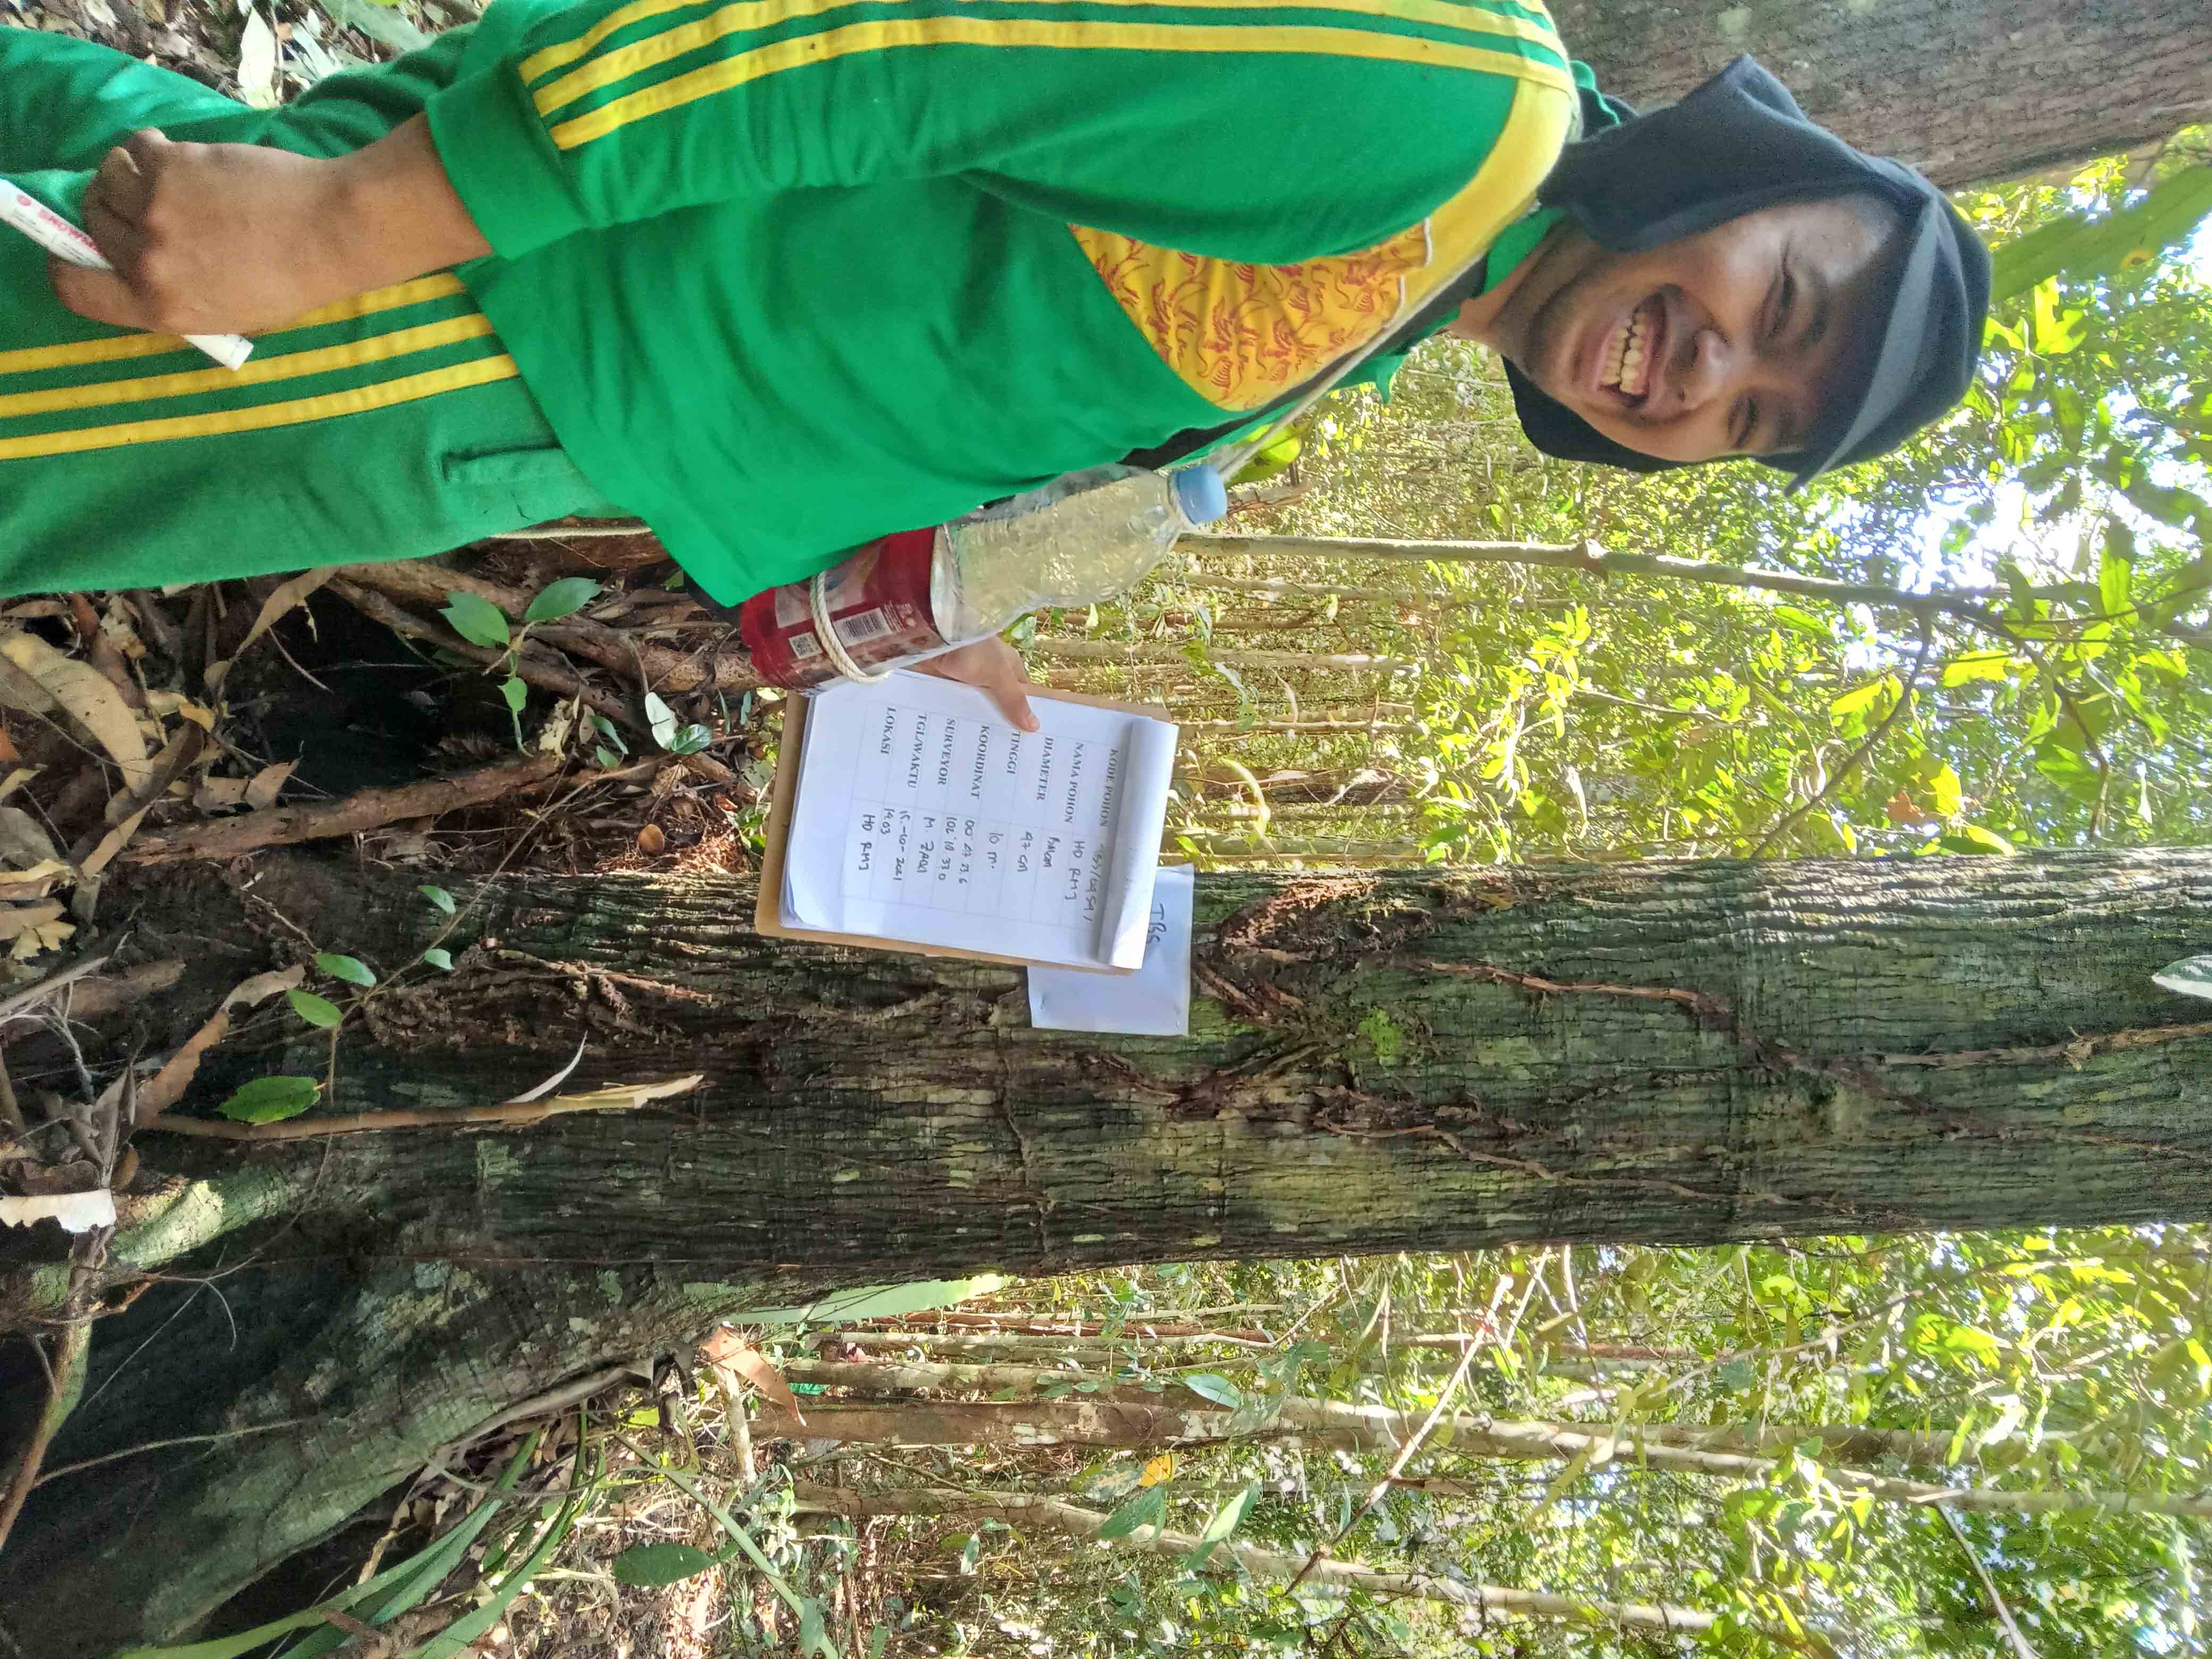 TBS
KODE POHON TBS/0459/
HD RMJ
NAMA POHON Balam
DIAMETER 47 cm
TINGGI 10 m.
KOORDINAT 00 47 23.6
102 10 33 0
SURVEYOR M. ZAKI
TGL/WAKTU 15-10-2021
14.03
LOKASI HD RMJ
SNOWMAN